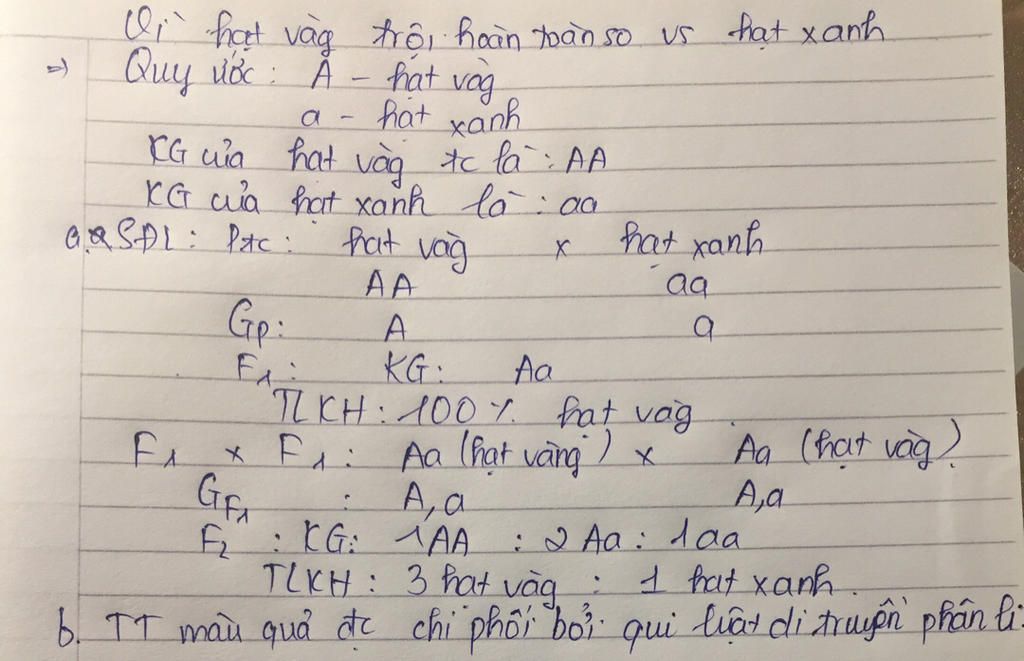 Vì hạt vàg trội hoàn toàn so vs hạt xanh
=) Quy ước : A - hạt vàg
a - hạt xanh
KG của hạt vàg tc là : AA
KG của hạt xanh là : aa
a. SĐL : Ptc : hạt vàg x hạt xanh
AA aa
Gp : A a
F1 : KG : Aa
TLKH : 100 % hạt vàg
F1 x F1 : Aa (hạt vàng) x Aa (hạt vàg)
GF1 : A, a A, a
F2 : KG : 1AA : 2 Aa : 1aa
TLKH : 3 hạt vàg : 1 hạt xanh.
b. TT màu quả đc chi phối bởi qui luật di truyền phân li.